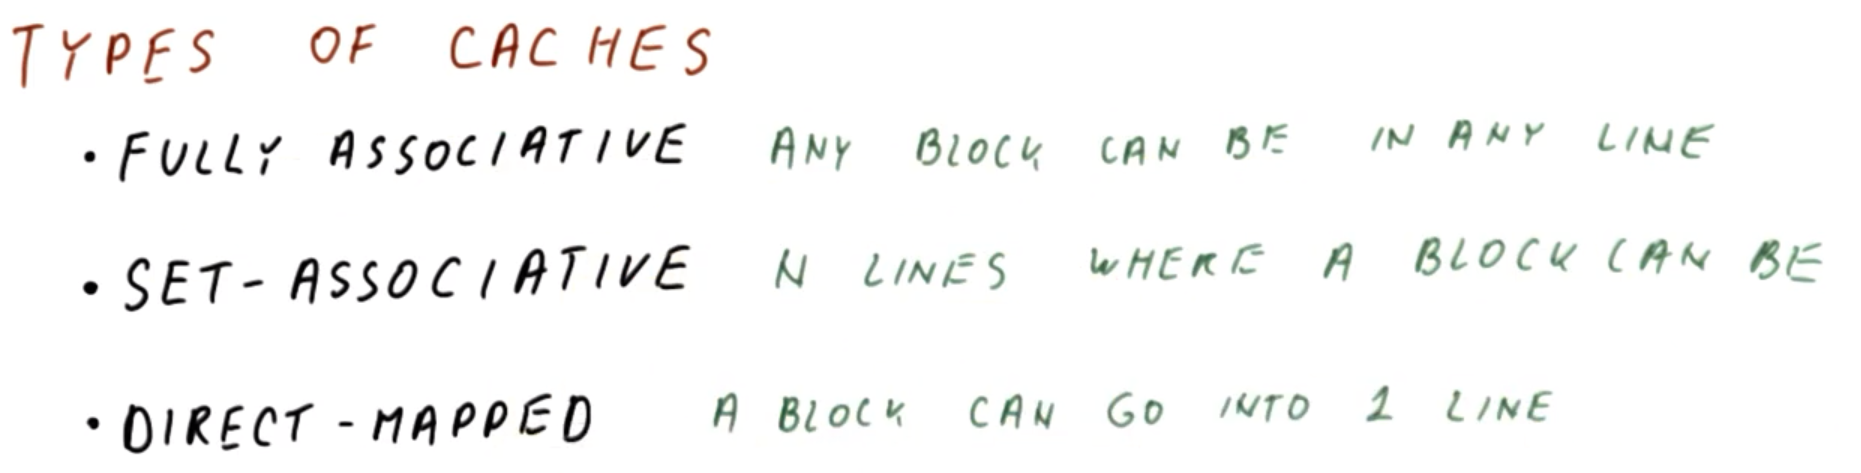 TYPES OF CACHES
• FULLY ASSOCIATIVE ANY BLOCK CAN BE IN ANY LINE
• SET-ASSOCIATIVE N LINES WHERE A BLOCK CAN BE
• DIRECT-MAPPED A BLOCK CAN GO INTO 1 LINE